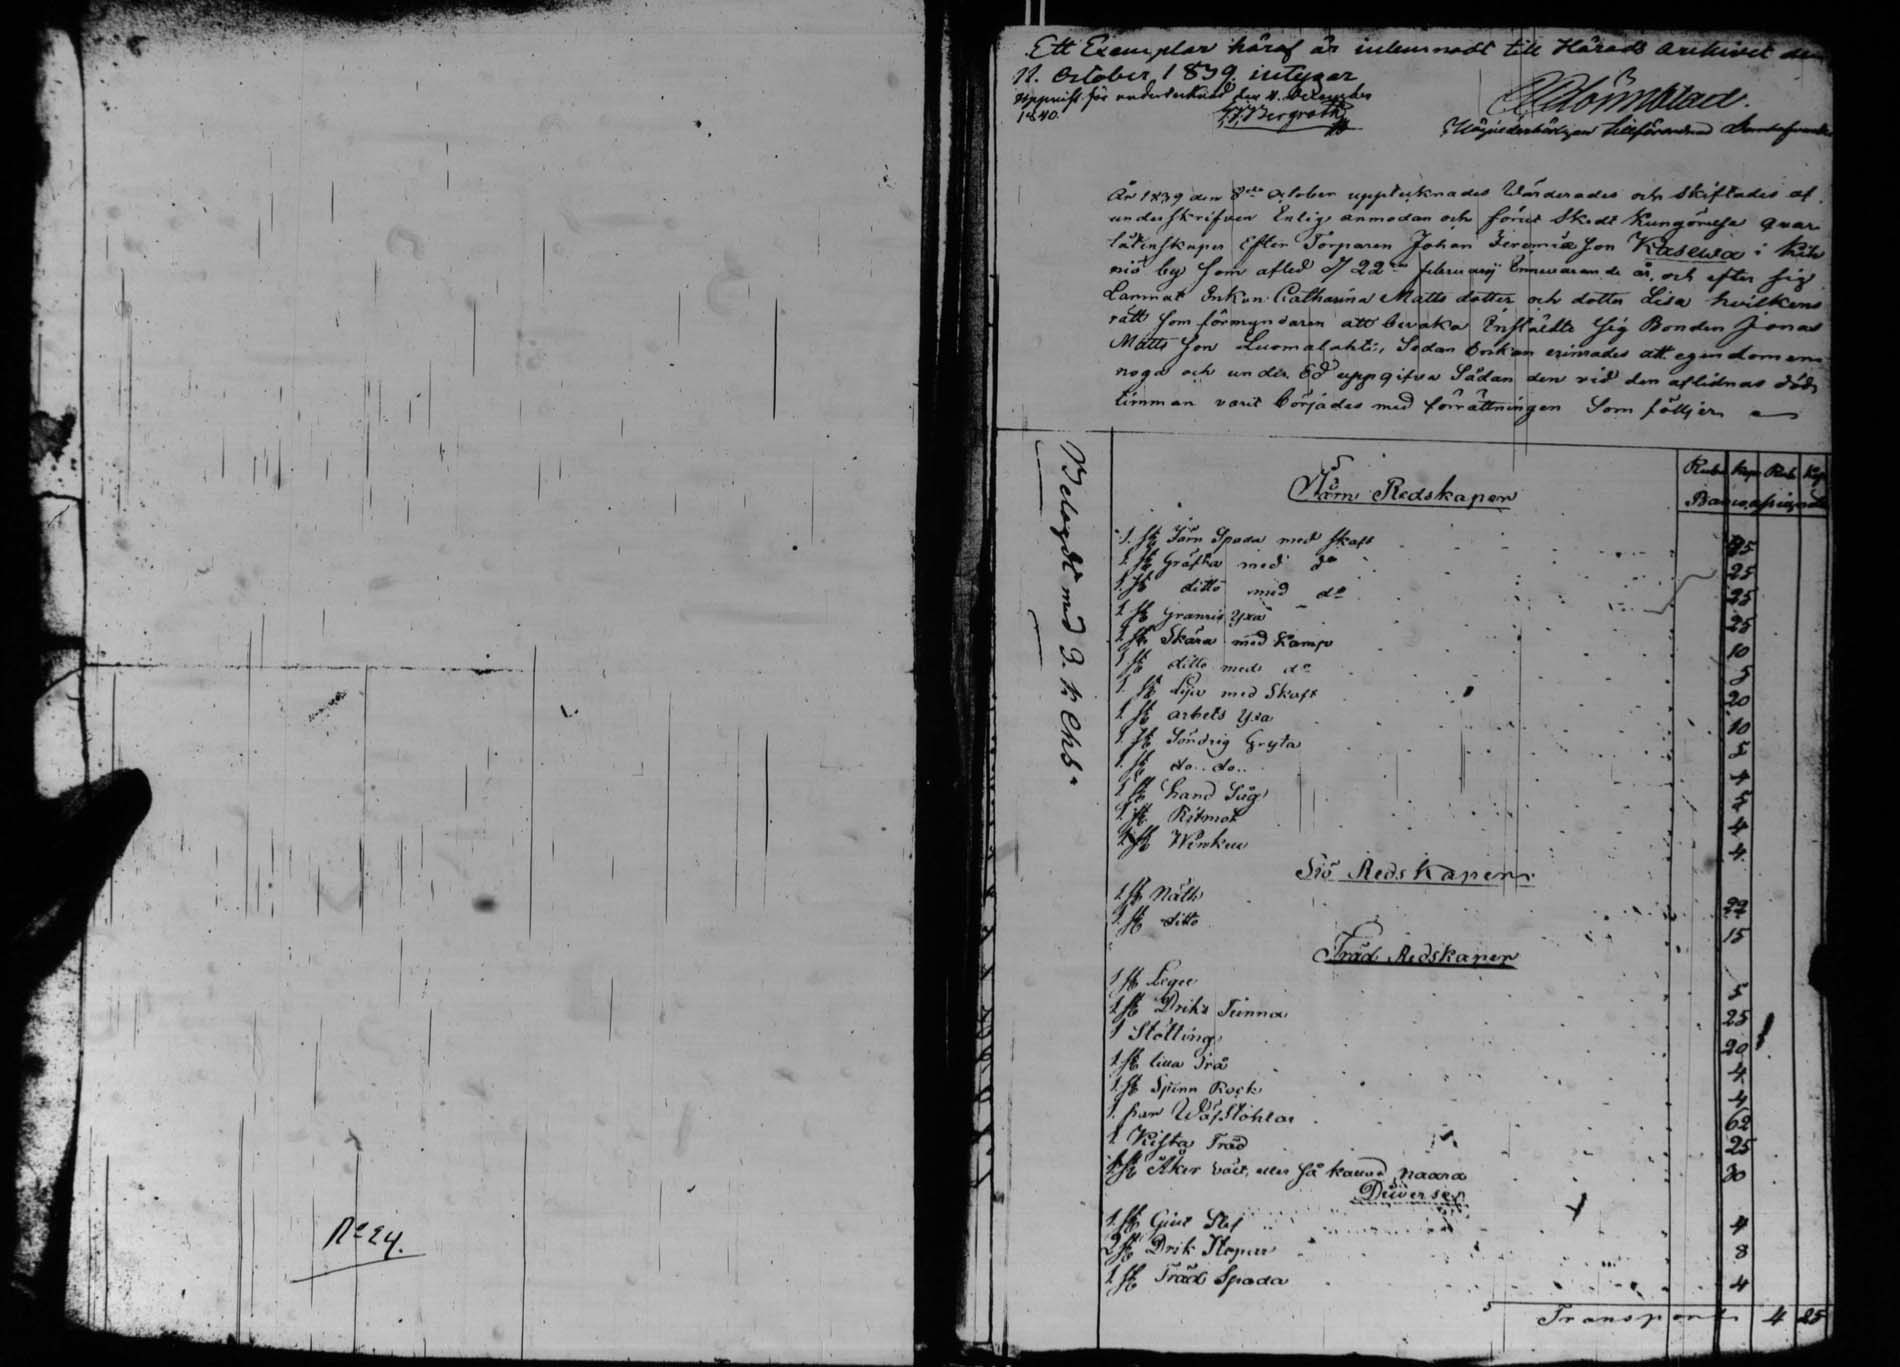 Ett Exemplar häraf är inlemnadt till Härads Archivet den
11. October 1839. intygar
uppvist för undertecknad den 11. December
1840.
Bergroth
År 1839 den 8de October upptecknades Värderades och skiftades af
underskrifven Enligt anmodan och förut Skedt Kungörelse qvar
låtenskapen Efter Torparen Johan Jeremiæ Son Kasewa i
by som afled d 22 februarij innevarande år, och efter sig
Lämnat Enkan Catharina Matts dotter och dotter Lisa hvilkens
rätt som förmyndaren att bevaka Instäldte sig Bonden Jonas
Matts Son Luomalahti, Sedan Enkan erinrades att egendomen
noga och under Ed uppgifva Sådan den vid den aflidnas döds
timman varit börjades med förrättningen Som följer
Belagdt med 3. k. Chs.
Rub. Kop. Rub. Kop.
Järn Redskaper
1. st Järn Spada med skaft 25
1 st Gräfta med do 25
1 st ditto med do 25
1 st yxa 25
1 st Skära med kamp 10
1 st ditto med do 5
1. st Lya med Skaft 20
1 st arbets yxa 10
1 st Söndrig Gryta 5
1. st do.. do..
1 st hand Såg 5
1 st 4
1 st 4
Siö Redskaper
1 st Näth
1. st ditto 15
Träd Redskaper
1 st 5
1 st Driks Tunna 25
1 Stötting 20
1 st lilla Trä 4
1 st Spinn Rock 4
1. par Wäf 62
1 Kista Träd 25
1 st Åker eller så kallad naara 30
Diverser
1. st 4
2 st Drik Stopar 8
1. st Träd Spada 4
Transport 4 25
No 24.